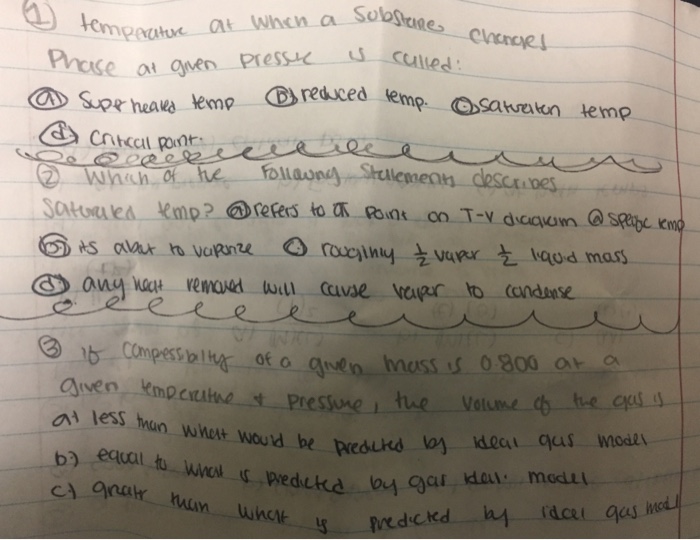 ① temperature at which a Substance changes
Phase at given pressure is called:
ⓐ Superheated temp Ⓑ reduced temp. Ⓒ saturation temp
ⓓ critical point.
② Which of the Following Statements describes
Saturated temp? ⓐ refers to a point on T-V diagram @ specific temp
ⓑ its about to vaporize ⓒ roughly 1/2 vapor 1/2 liquid mass
ⓓ any heat removed will cause vapor to condense
③ if compessibilty of a given mass is 0.800 at a
given temperature & pressure, the volume of the gas is
a) less than what would be predicted by ideal gas model
b) equal to what is predicted by gas ideal model
c) greatr than what is predicted by ideal gas model